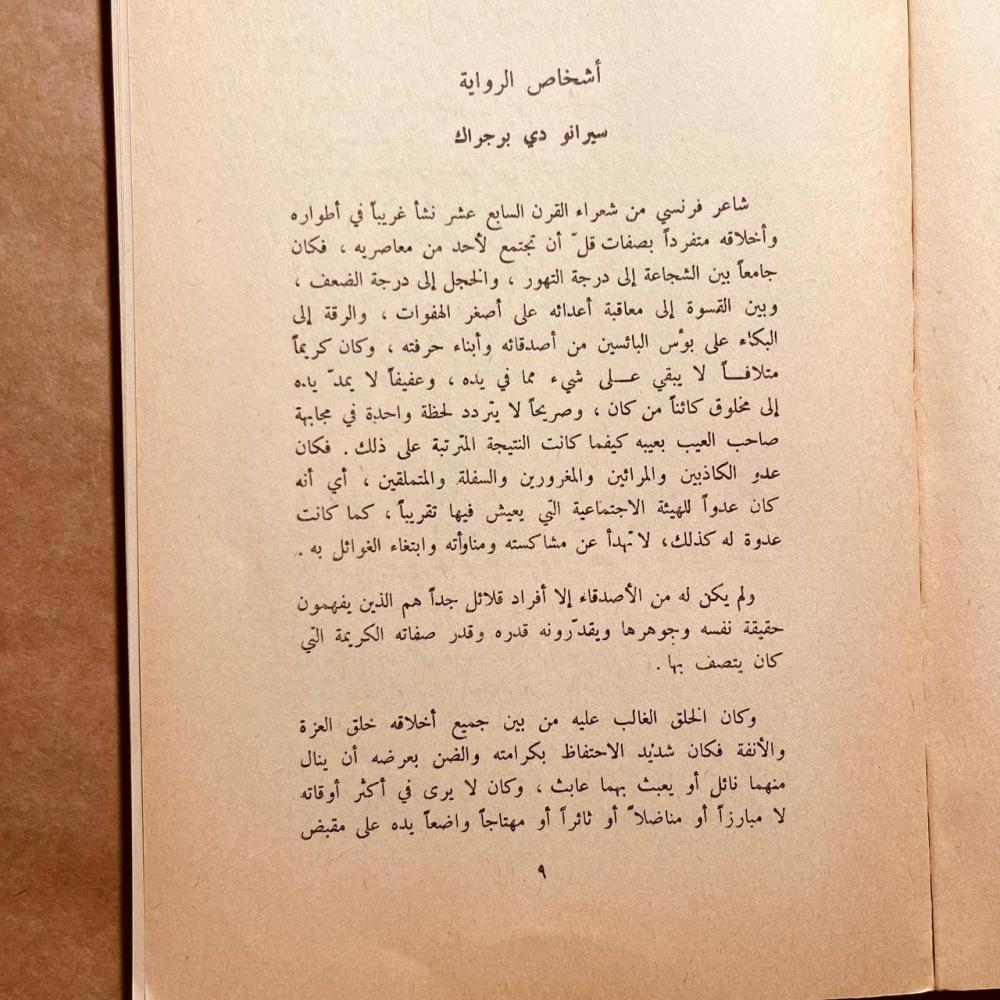 أشخاص الرواية
سيرانو دي برجراك
شاعر فرنسي من شعراء القرن السابع عشر نشأ غريباً في أطواره
وأخلاقه متفرداً بصفات قلّ أن تجتمع لأحد من معاصريه ، فكان
جامعاً بين الشجاعة إلى درجة التهور ، والخجل إلى درجة الضعف ،
وبين القسوة إلى معاقبة أعدائه على أصغر الهفوات ، والرقة إلى
البكاء على بؤس البائسين من أصدقائه وأبناء حرفته ، وكان كريماً
متلافـــاً لا يبقي عـــلى شيء مما في يده ، وعفيفاً لا يمدّ يده
إلى مخلوق كائناً من كان ، وصريحاً لا يتردد لحظة واحدة في مجابهة
صاحب العيب بعيبه كيفما كانت النتيجة المترتبة على ذلك . فكان
عدو الكاذبين والمرائين والمغرورين والسفلة والمتملقين ، أي أنه
كان عدواً للهيئة الاجتماعية التي يعيش فيها تقريباً ، كما كانت
عدوة له كذلك ، لا تهدأ عن مشاكسته ومناوأته وابتغاء الغوائل به .
ولم يكن له من الأصدقاء إلا أفراد قلائل جداً هم الذين يفهمون
حقيقة نفسه وجوهرها ويقدّرونه قدره وقدر صفاته الكريمة التي
كان يتصف بها .
وكان الخلق الغالب عليه من بين جميع أخلاقه خلق العزة
والأنفة فكان شديد الاحتفاظ بكرامته والضن بعرضه أن ينال
منهما نائل أو يعبث بهما عابث ، وكان لا يرى في أكثر أوقاته
لا مبارزاً أو مناضلاً أو ثائراً أو مهتاجاً واضعاً يده على مقبض
٩